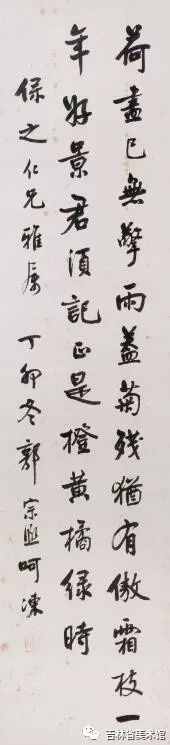 荷盡已無擎雨蓋菊殘猶有傲霜枝一
年好景君須記正是橙黃橘綠時
保之仁兄雅屬 丁卯冬郭宗熙呵凍
吉林省美术馆